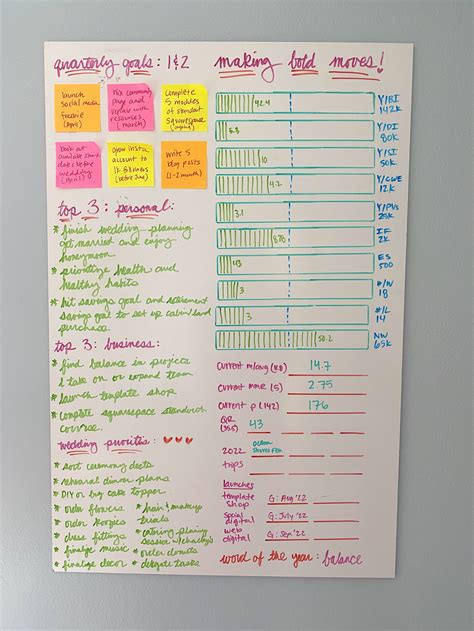 quarterly goals: 1&2
launch
social media
freebie
(April)
fix community
page and
update with
resources
(march)
complete
5 modules
of standout
squarespace
(ongoing)
look at
available
dates before
wedding
(April)
grow insta
account to
1k followers
(before June)
write 5
blog posts
(1-2 month)
top 3: personal:
* finish wedding planning
get married and enjoy
honeymoon
* prioritize health and
healthy habits
* hit savings goal and retirement
savings goal to set up cabin/land
purchase
top 3: business:
* find balance in projects
I take on or expand team
* launch template shop
* complete squarespace standout
course.
wedding priorities:
* sort ceremony deets
* rehearsal dinner plans
* DIY or buy cake topper
* order flowers
* order koozies
* dress fittings
* finalize music
* finalize decor
* hair/makeup
trials
* catering
session w/
* order donuts
* delegate tasks
making bold moves!
92.4
Y/BI
142k
5.3
Y/DI
80k
10
Y/SI
50k
4
Y/CWE
12k
3.1
Y/PVs
25k
878
IF
2k
43
ES
500
3
#/N
18
3
#/L
14
50.2
NW
65k
current
14.7
current
2.75
current p (142)
176
43
2022
trips
launches
template
shop
G: Aug '22
social
digital
G: July '22
web
digital
G: Sep '22
word of the year: balance